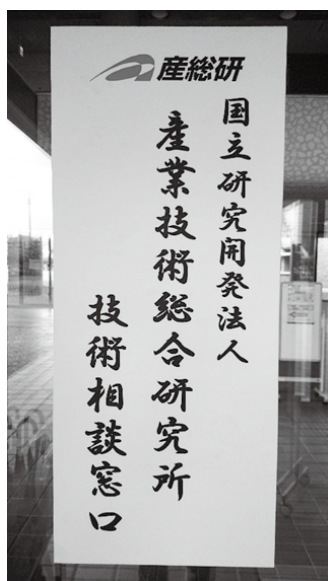 産総研
国立研究開発法人
産業技術総合研究所
技術相談窓口